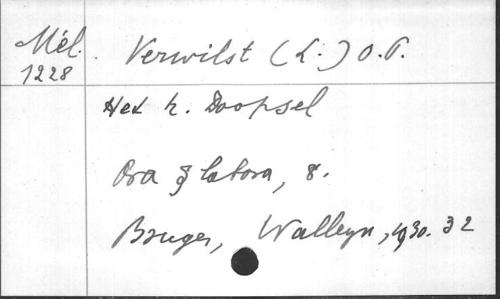 Mél. Verwilst (L.) O.P.
1228
Het h. Doopsel
Ora & labora, 8.
Bruges, Walleyn, 1930. 32